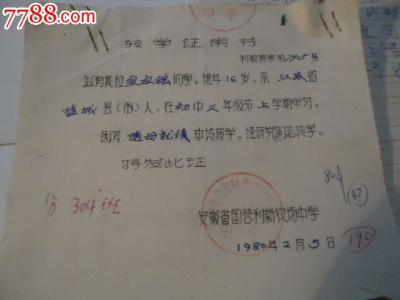 7788.com
转学证明书
利教转学第1905号
兹有我校金安银同学,现年16岁,系江苏省
盐城县(市)人,在初中三年级上学期学习,
因随母就读申请转学,经研究同意转学。
特发此证
804
(47)
分 304班
安徽省国营利新农场中学
1980年2月5日
190